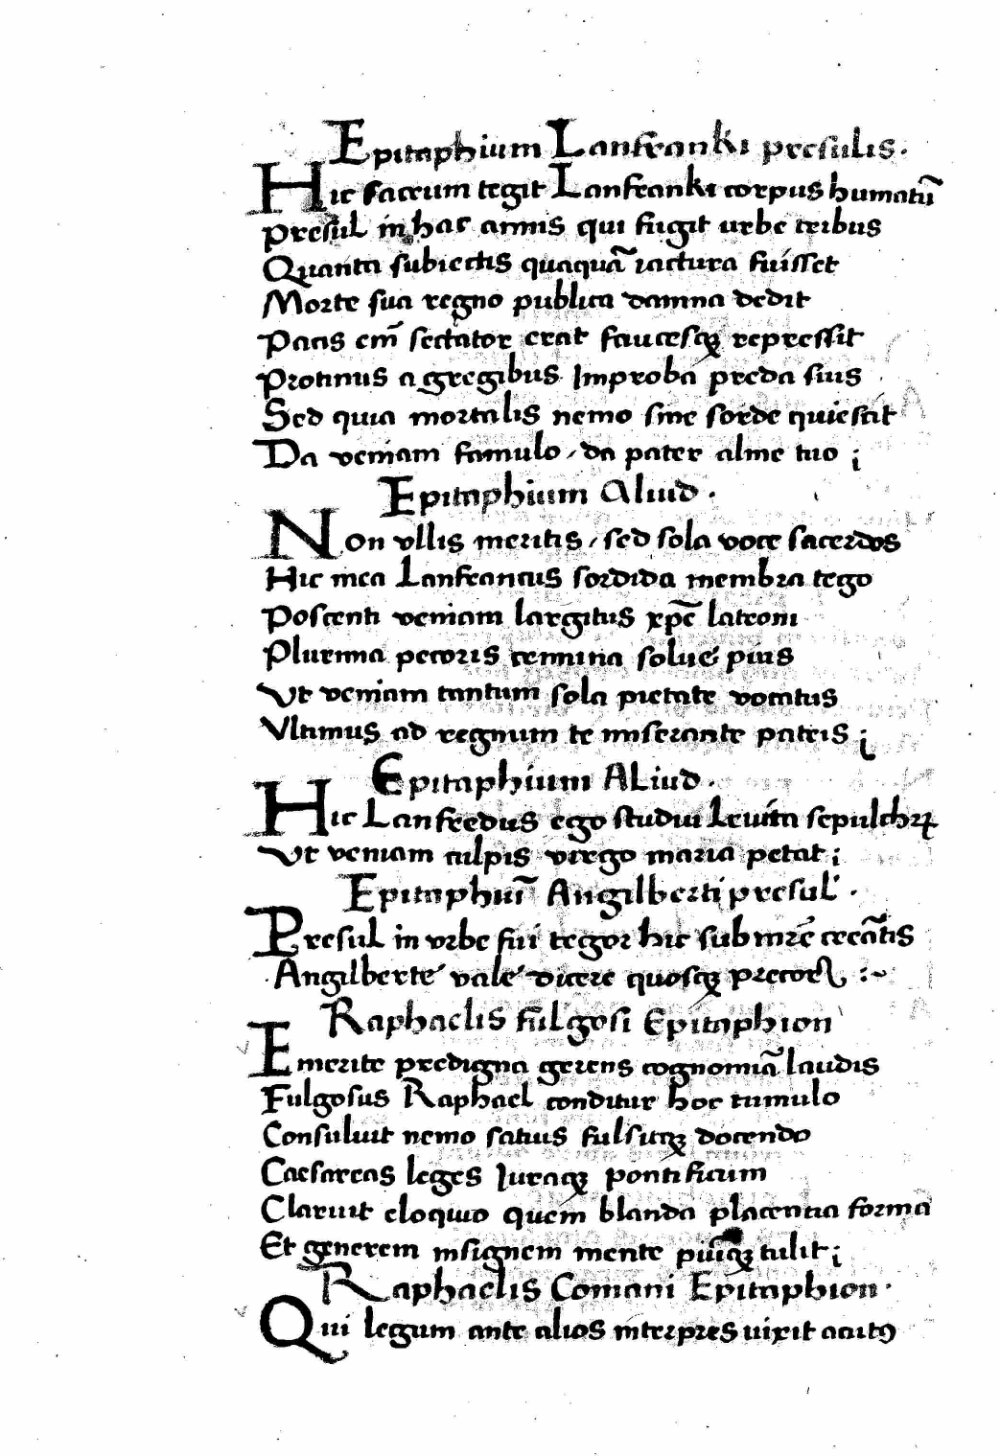 Epitaphium Lanfranki presulis.
Hic sacrum tegit Lanfranki corpus humatū
Presul in hac annis qui fugit urbe tribus
Quanta subiectis quaquā iactura fuisset
Morte sua regno publica damna dedit
Pacis em̄ sectator erat faucesqꝫ repressit
Protinus a gregibus Improba preda suis
Sed quia mortalis nemo sine sorde quiescit
Da veniam famulo / da pater alme tuo ;
Epitaphium Aliud.
Non vllis meritis / sed sola voce sacerdos
Hic mea Lanfrancus sordida membra tego
Poscenti veniam largitus xp̄e latroni
Plurima pectoris crimina solue pius
Vt veniam tantum sola pietate vocatus
Vltimus ad regnum te miserante patris ;
Epitaphium ALiud.
Hic Lanfredus ego studui Leuita sepulchꝝ
Vt veniam culpis virgo maria petat ;
Epitaphiū Angilberti presul'.
Presul in vrbe fui tegor hic sub mr̄e creātis
Angilberte vale dicere quosqꝫ precor :~
Raphaelis fulgosi Epitaphion
Emerite predigna gerens cognomiā laudis
Fulgosus Raphael conditur hoc tumulo
Consuluit nemo satius fulsitqꝫ docendo
Caesareas leges Iuraqꝫ pontificum
Claruit eloquio quem blanda placentia forma
Et generem insignem mente piūqꝫ tulit ;
Raphaelis Comani Epitaphion.
Qui legum ante alios interpres uixit acutꝯ